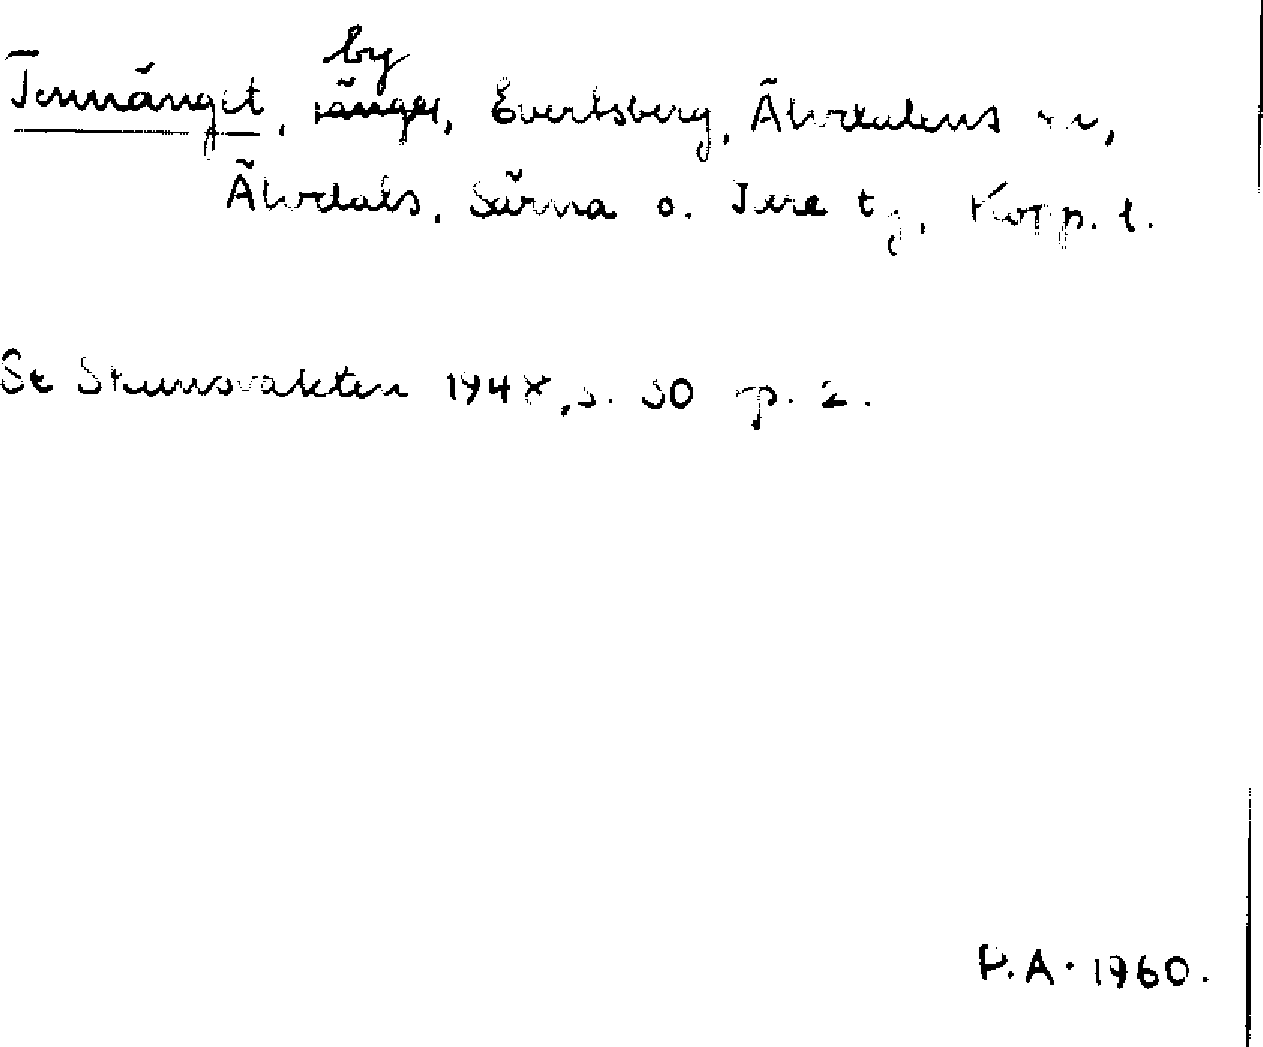 Tennänget, by, Evertsberg, Älvdalens sn,
Älvdals, Särna o. Idre tg, Kopp. l.
Se Skansvakten 1948, s. 30 sp. 2.
P.A. 1960.